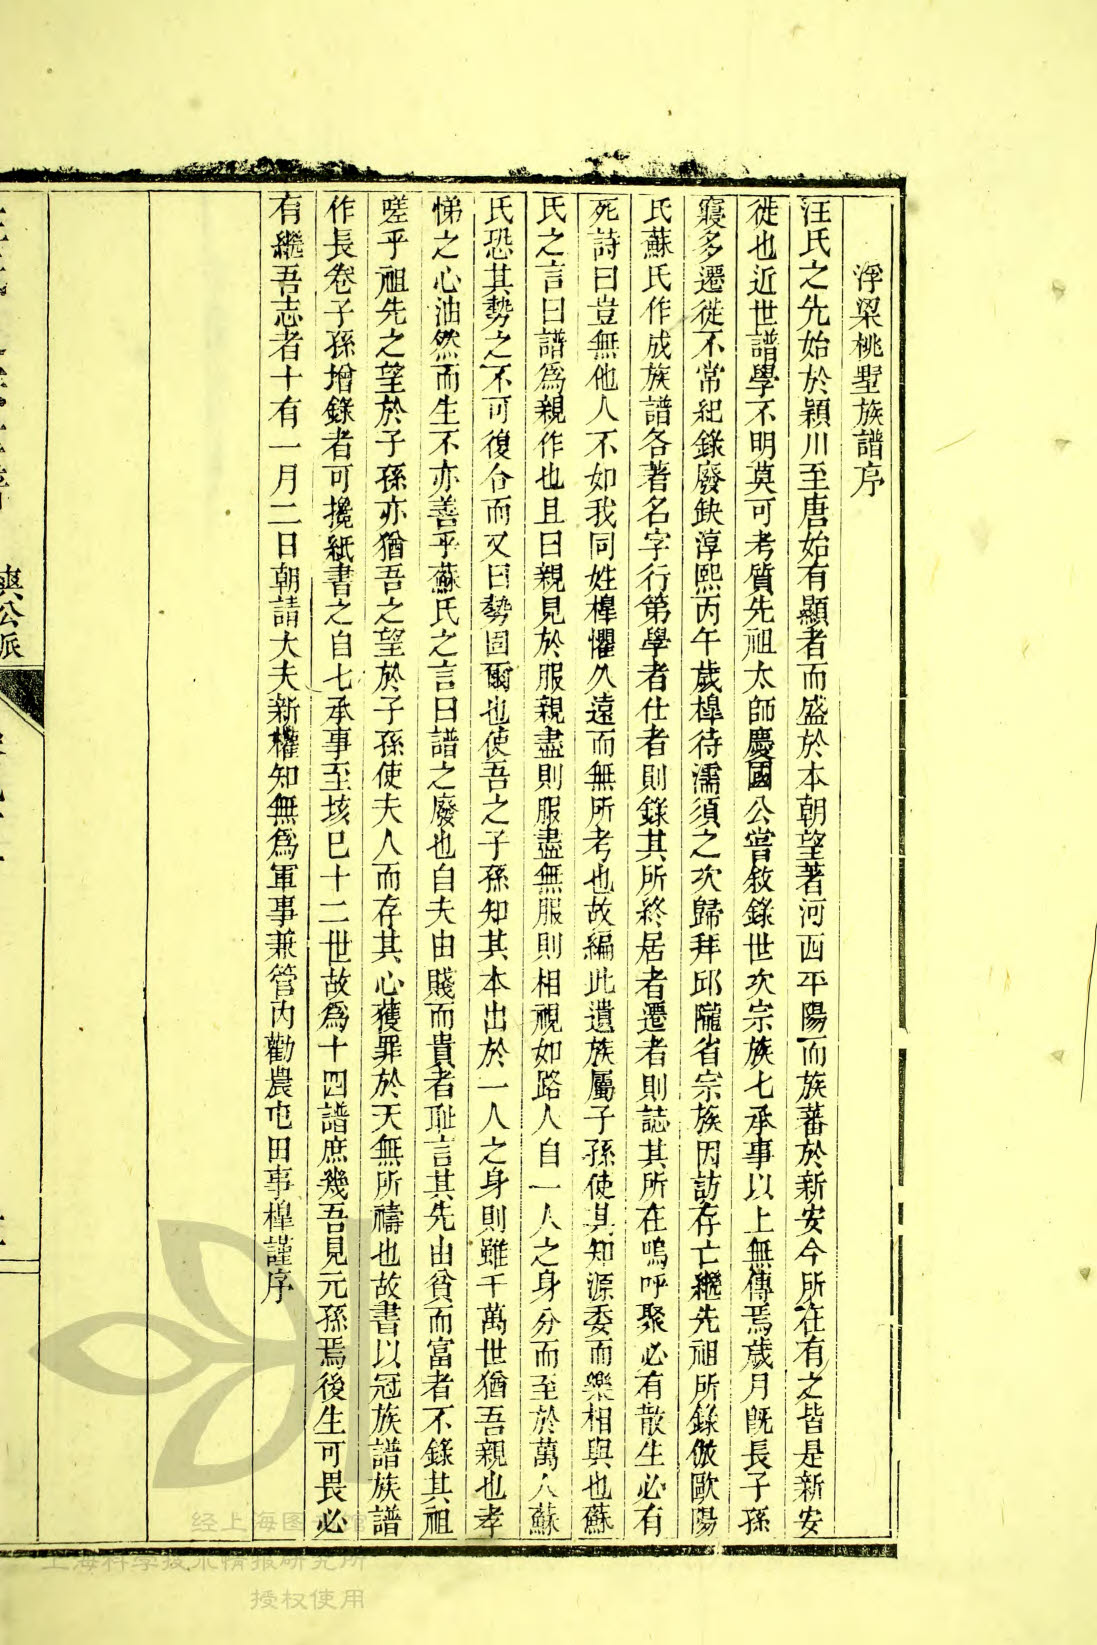 浮梁桃墅族譜序
汪氏之先始於穎川至唐始有顯者而盛於本朝望著河西平陽而族蕃於新安今所在有之皆是新安
徙也近世譜學不明莫可考質先祖太師慶國公嘗敘錄世次宗族七承事以上無傳焉歲月旣長子孫
寖多遷徙不常紀錄廢缺淳熙丙午歲楻待濡須之次歸拜邱隴省宗族因訪存亡繼先祖所錄倣歐陽
氏蘇氏作成族譜各著名字行第學者仕者則錄其所終居者遷者則誌其所在嗚呼聚必有散生必有
死詩曰豈無他人不如我同姓楻懼久遠而無所考也故編此遺族屬子孫使其知源委而樂相與也蘇
氏之言曰譜爲親作也且曰親見於服親盡則服盡無服則相視如路人自一人之身分而至於萬人蘇
氏恐其勢之不可復合而又曰勢固爾也使吾之子孫知其本出於一人之身則雖千萬世猶吾親也孝
悌之心油然而生不亦善乎蘇氏之言曰譜之廢也自夫由賤而貴者耻言其先由貧而富者不錄其祖
嗟乎祖先之望於子孫亦猶吾之望於子孫使夫人而存其心獲罪於天無所禱也故書以冠族譜族譜
作長卷子孫增錄者可攙紙書之自七承事至垓巳十二世故爲十四譜庶幾吾見元孫焉後生可畏必
有繼吾志者十有一月二日朝請大夫新權知無爲軍事兼管內勸農屯田事楻謹序
公派
经上海图书馆
上海科学技术情报研究所
授权使用